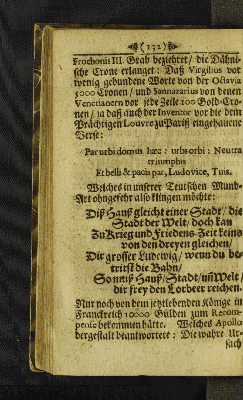 (132)
Frothonis III. Grab beziehret / die Dähni-
sche Crone erlanget: Daß Virgilius vor
wenig gebundene Worte von der Octavia
5000 Cronen / und Sannazarius von denen
Venetianern vor jede Zeile 100 Gold-Cro-
nen / ja daß auch der Inventor vor die dem
Prächtigen Louvre zu Pariß eingehauene
Verse:
Par urbi domus hæc: urbs orbi: Neutra
triumphis
Et belli & pacis par, Ludovice, Tuis.
Welches in unserer Teutschen Mund-
Art ohngefehr also klingen möchte:
Diß Hauß gleicht einer Stadt / die
Stadt der Welt / doch kan
Zu Krieg und Friedens Zeit keins
von den dreyen gleichen /
Dir grosser Ludewig / wenn du be-
trittst die Bahn /
So muß Hauß / Stadt / uñ Welt /
dir frey den Lorbeer reichen.
Nur noch von dem jetztlebenden Könige in
Franckreich 10000 Gülden zum Recom-
pens bekommen hätte. Welches Apollo
dergestalt beantwortett: Die wahre Ur-
sach